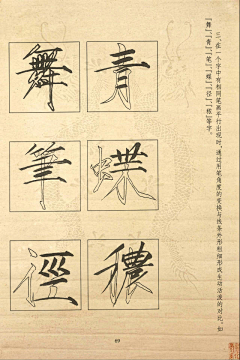 三、在一个字中有相同笔画平行出现时，通过用笔角度的变换与线条外形粗细形成生动活泼的对比。如
“舞”、“青”、“笔”、“蝶”、“径”、“秾”等字。
舞 青
筆 蝶
徑 穠
69